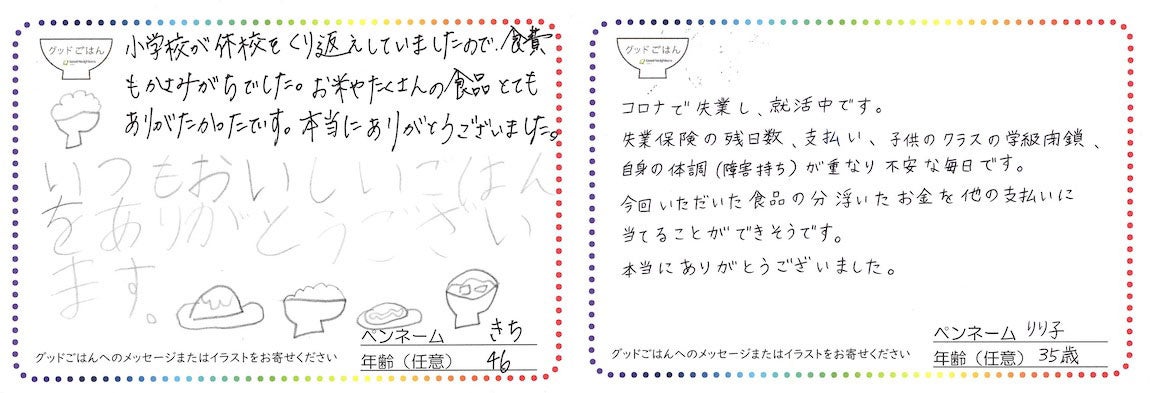 グッドごはん
Good Neighbors
小学校が休校をくり返えしていましたので、食費
もかさみがちでした。お米やたくさんの食品とても
ありがたかったです。本当にありがとうございました。
いつもおいしいごはん
をありがとうござい
ます。
ペンネーム きち
グッドごはんへのメッセージまたはイラストをお寄せください
年齢（任意） 46
グッドごはん
Good Neighbors
コロナで失業し、就活中です。
失業保険の残日数、支払い、子供のクラスの学級閉鎖、
自身の体調(障害持ち)が重なり不安な毎日です。
今回いただいた食品の分浮いたお金を他の支払いに
当てることができそうです。
本当にありがとうございました。
ペンネーム りり子
グッドごはんへのメッセージまたはイラストをお寄せください
年齢（任意） 35歳